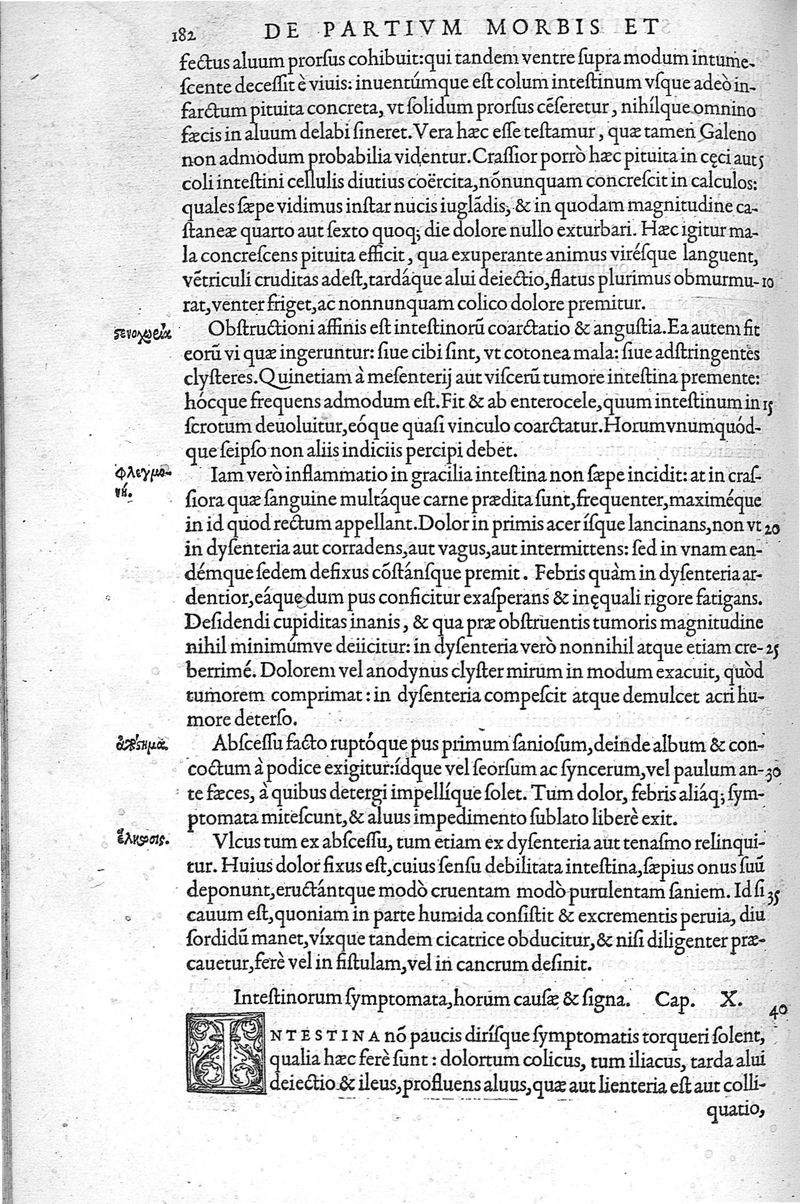 182 DE PARTIVM MORBIS ET
fectus aluum prorſus cohibuit:qui tandem ventre ſupra modum intume-
ſcente deceſſit è viuis: inuentúmque eſt colum inteſtinum vſque adeò in-
farctum pituita concreta, vt ſolidum prorſus cẽſeretur, nihílque omnino
fæcis in aluum delabi ſineret. Vera hæc eſſe teſtamur, quæ tamen Galeno
non admodum probabilia videntur. Craſſior porrò hæc pituita in cęci aut 5
coli inteſtini cellulis diutius coërcita, nõnunquam concreſcit in calculos:
quales ſæpe vidimus inſtar nucis iuglãdis, & in quodam magnitudine ca-
ſtaneæ quarto aut ſexto quoq; die dolore nullo exturbari. Hæc igitur ma-
la concreſcens pituita efficit, qua exuperante animus viréſque languent,
vẽtriculi cruditas adeſt, tardáque alui deiectio, flatus plurimus obmurmu- 10
rat, venter friget, ac nonnunquam colico dolore premitur.
ςενοχωεία Obſtructioni affinis eſt inteſtinorũ coarctatio & anguſtia. Ea autem fit
eorũ vi quæ ingeruntur: ſiue cibi ſint, vt cotonea mala: ſiue adſtringentes
clyſteres. Quinetiam à meſenterij aut viſcerũ tumore inteſtina premente:
hócque frequens admodum eſt. Fit & ab enterocele, quum inteſtinum in 15
ſcrotum deuoluitur, eóque quaſi vinculo coarctatur. Horum vnumquód-
que ſeipſo non aliis indiciis percipi debet.
φλεγμο- Iam verò inflammatio in gracilia inteſtina non ſæpe incidit: at in craſ-
νή. ſiora quæ ſanguine multáque carne prædita ſunt, frequenter, maximéque
in id quod rectum appellant. Dolor in primis acer íſque lancinans, non vt 20
in dyſenteria aut corradens, aut vagus, aut intermittens: ſed in vnam ean-
démque ſedem defixus cõſtánſque premit. Febris quàm in dyſenteria ar-
dentior, eáque dum pus conficitur exaſperans & inęquali rigore fatigans.
Deſidendi cupiditas inanis, & qua præ obſtruentis tumoris magnitudine
nihil minimúmve deiicitur: in dyſenteria verò nonnihil atque etiam cre- 25
berrimé. Dolorem vel anodynus clyſter mirum in modum exacuit, quòd
tumorem comprimat: in dyſenteria compeſcit atque demulcet acri hu-
more deterſo.
ἀπόςημα. Abſceſſu facto ruptóque pus primum ſanioſum, deinde album & con-
coctum à podice exigitur: ídque vel ſeorſum ac ſyncerum, vel paulum an- 30
te fæces, à quibus detergi impellíque ſolet. Tum dolor, febris aliáq; ſym-
ptomata miteſcunt, & aluus impedimento ſublato liberè exit.
ἕλκωσις. Vlcus tum ex abſceſſu, tum etiam ex dyſenteria aut tenaſmo relinqui-
tur. Huius dolor fixus eſt, cuius ſenſu debilitata inteſtina, ſæpius onus ſuũ
deponunt, eructántque modò cruentam modò purulentam ſaniem. Id ſi 35
cauum eſt, quoniam in parte humida conſiſtit & excrementis peruia, diu
ſordidũ manet, víxque tandem cicatrice obducitur, & niſi diligenter præ-
cauetur, ferè vel in fiſtulam, vel in cancrum deſinit.
Inteſtinorum ſymptomata, horum cauſæ & ſigna. Cap. X.
40
INTESTINA nõ paucis diríſque ſymptomatis torqueri ſolent,
qualia hæc ferè ſunt: dolor tum colicus, tum iliacus, tarda alui
deiectio & ileus, profluens aluus, quæ aut lienteria eſt aut colli-
quatio,